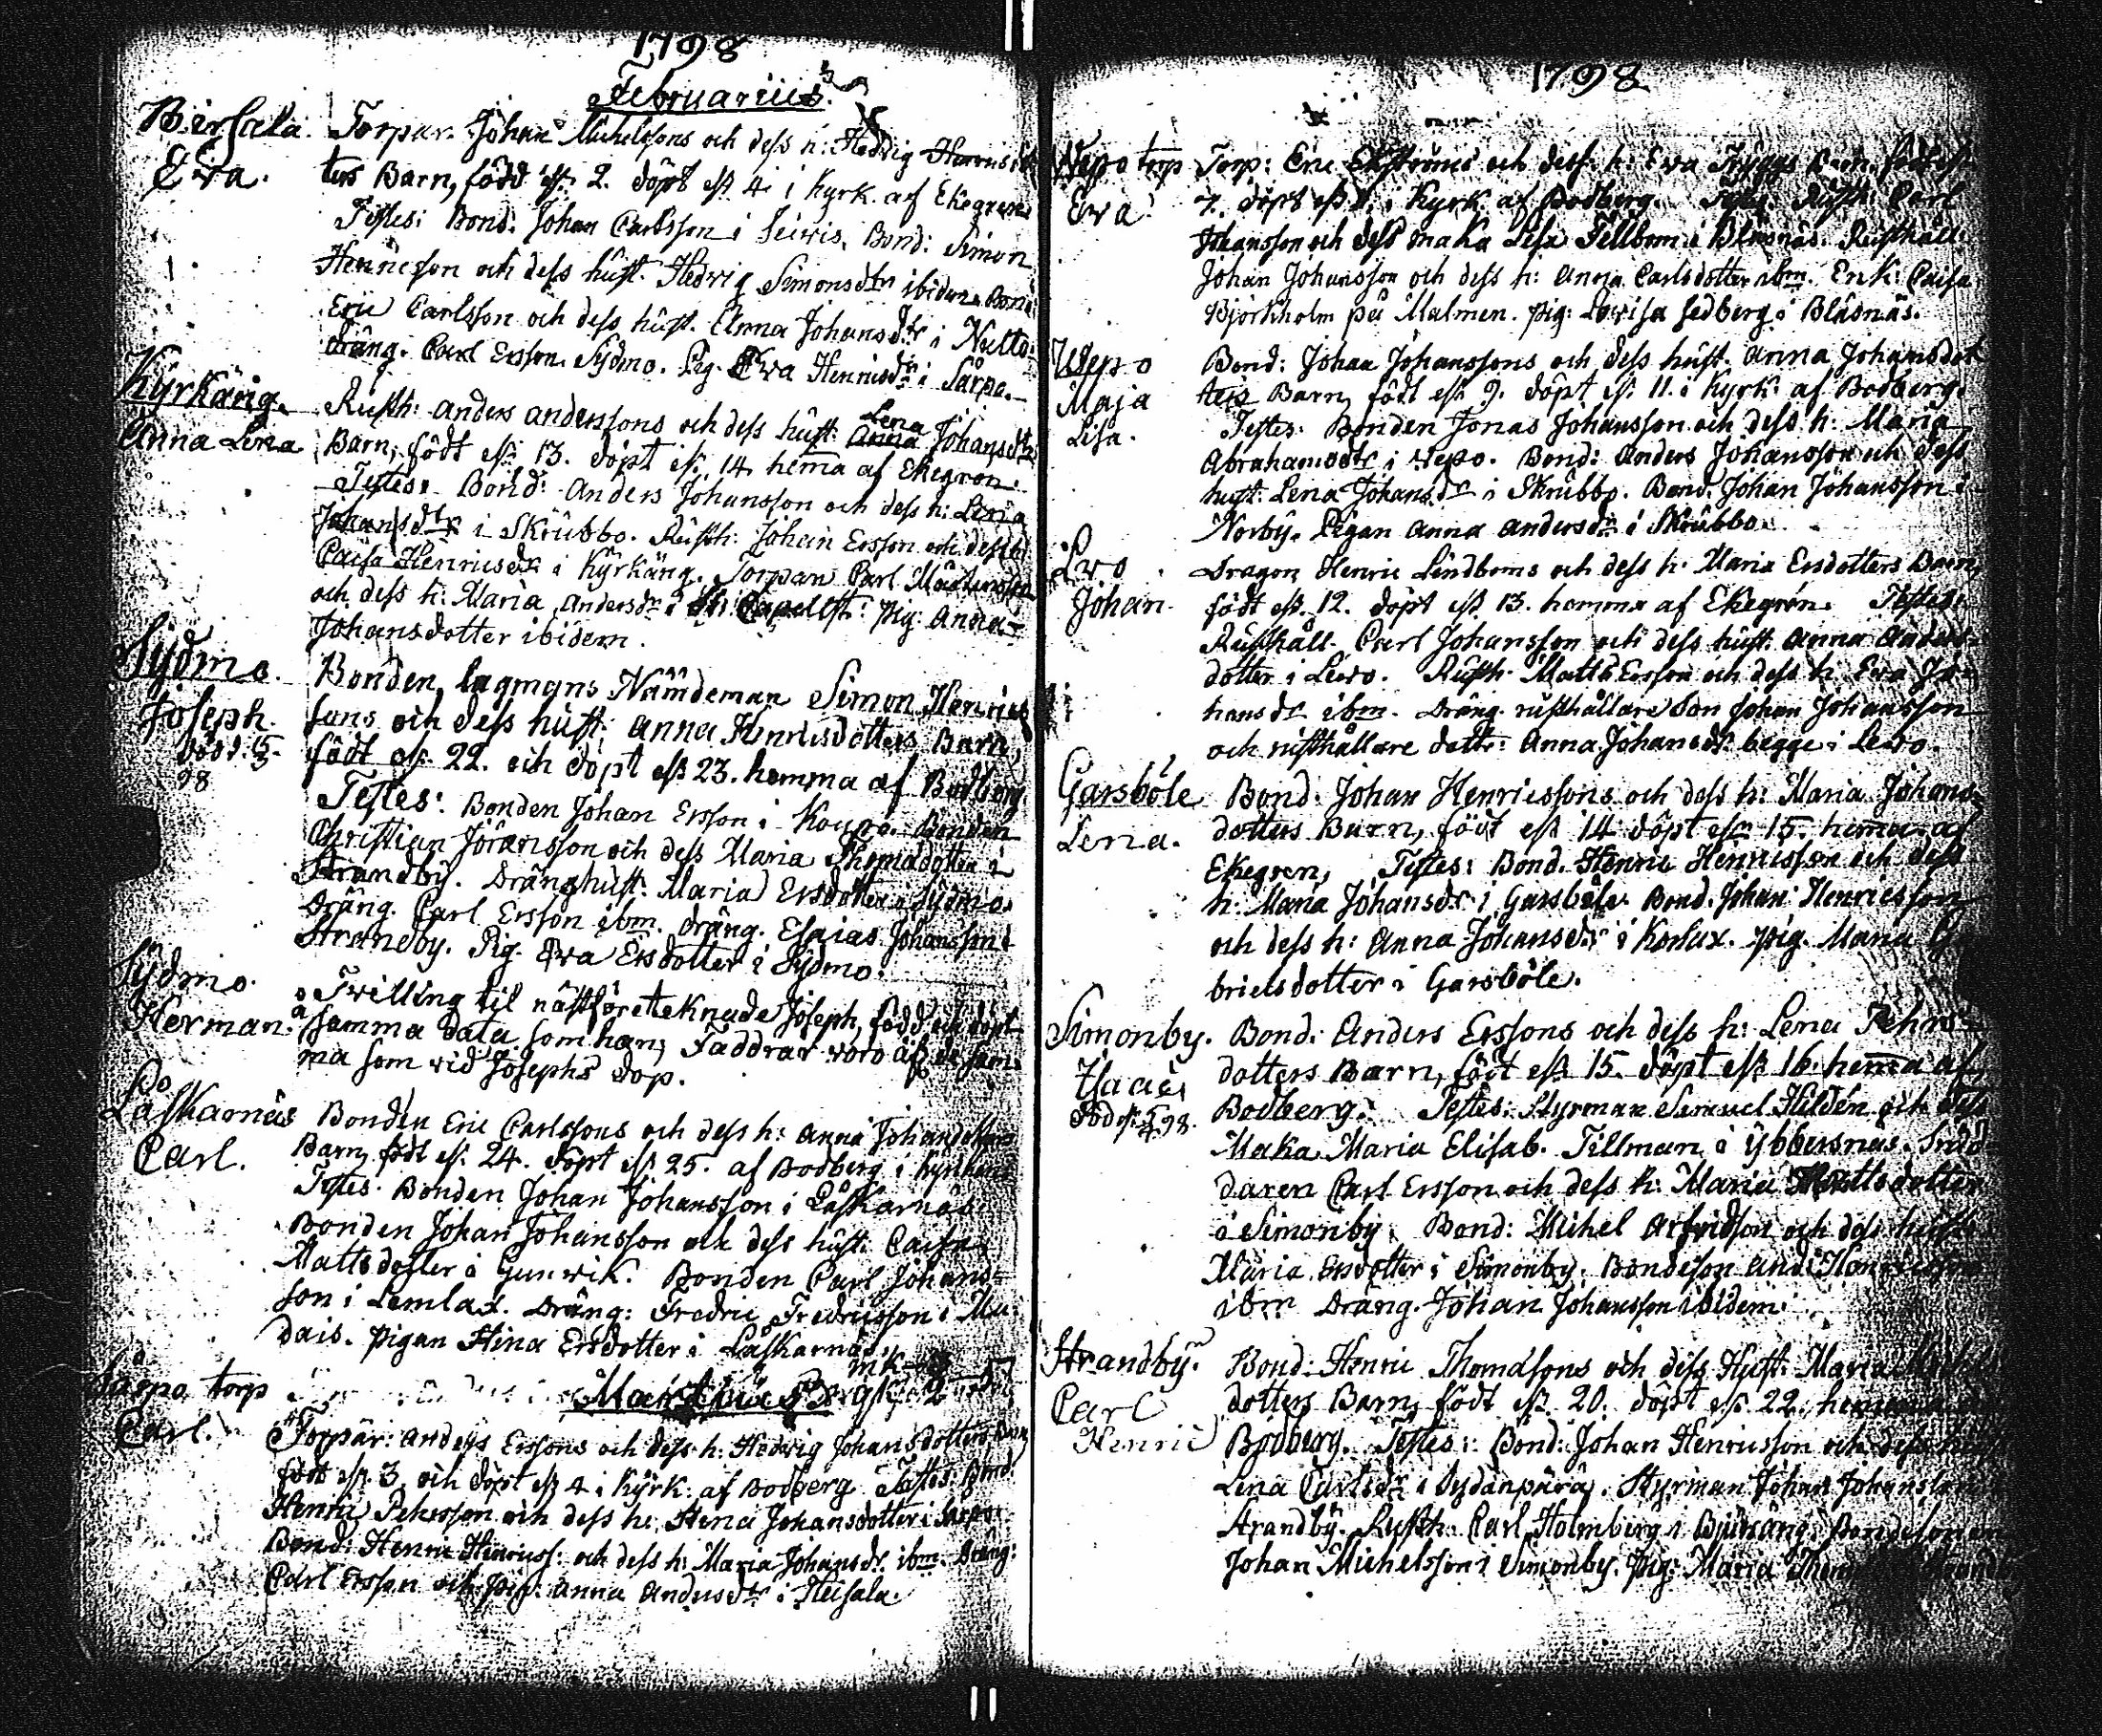 1798
Februarius.
Birsala. Torpar. Johan Michelssons och dess h: Hedvig Henricsdot
Eva. ters Barn, född ess. 2. döpt ess 4 i Kyrk. af Ekegren.
Testes: Bond: Johan Carlsson i Leiwis, Bond: Simon
Henricsson och dess hust. Hedvig Simonsdtr ibidem. Bond:
Eric Carlsson och dess hust. Anna Johansdtr i Nutto
dräng. Carl Ersson Sydmo. Pig. Eva Henricsdr i Särpa.
Kyrkäng. Rusth: Anders Anderssons och dess hust: Anna Lena Johansdtrs
Anna Lena Barn, födt ess. 13. döpt ess. 14 hema af Ekegren.
Testes. Bond: Anders Johansson och dess h: Lena
Johansdtr i Skrubbo. Rusth: Johan Ersson och dess h:
Caisa Henricsdr i Kyrkäng. Torparn Carl Mårtensson
och dess h: Maria Andersdr i Capellst: pig: Anna
Johansdotter ibidem.
Sydmo. Bonden, lagmans Nämdeman Simon Henrics
Joseph. sons och dess hust: Anna Henricsdotters Barn,
död d. 5/3 98 födt ess. 22. och döpt ess 23. hemma af Bodberg.
Testes: Bonden Johan Ersson i Koupo. Bonden
Christian Jöransson och dess Maria Thomasdotter i
Strandby. Dränghust: Maria Ersdotter i Sydmo.
Dräng. Carl Ersson ibm. dräng. Esaias Johansson i
Strandby. Pig. Eva Ersdotter i Sydmo.
Sydmo. Twilling til nästföreteknade Joseph, född och döpt
Herman. samma data som han, Faddrar woro äf de sam-
ma som wid Josephs dop.
Låskarnäs Bonden Eric Carlssons och dess h: Anna Johansdotters
Carl. Barn, födt ess. 24. döpt ess 25. af Bodberg i Kyrkan.
Testes: Bonden Johan Johansson i Låskarnäs
Bonden Johan Johansson och dess hust: Caisa
Mattsdotter i Gunwik. Bonden Carl Johans=
son i Lemlax. Dräng: Fredric Fredricsson i Mu-
dais. Pigan Stina Ersdotter i Låskarnäs.
Martius
Särpo torp Torpar: Anders Erssons och dess h: Hedwig Johansdotters Barn
Carl. födt ess. 3. och döpt ess 4 i Kyrk: af Bodberg Testes: Bond:
Henric Pehrsson och dess h: Stina Johansdotter i Särpo.
Bond: Henric Henricss: och dess h: Maria Johansdr ibm. Dräng:
Carl Ersson och pig: Anna Andersdtr i Heisala.
1798
Wepo torp Torp: Eric Ekströms och dess h: Eva Tryggs Barn, födt ess
Eva 7. döpt ess 8. i Kyrk af Bodberg. Testes: Rusth: Carl
Johansson och dess maka Lisa Tellbom i Blåsnäs. Rusthåll.
Johan Johansson och dess h: Anna Carlsdotter ibm. Enk: Caisa
Björkholm på Malmen. pig: Lovisa Sedberg i Blåsnäs.
Wepo Bond: Johan Johanssons och dess hust. Anna Johansdot
Maja ters Barn, födt ess 9. döpt ess. 11. i Kyrk. af Bodberg.
Lisa. Testes: Bonden Jonas Johansson och dess h: Maria
Abrahamsdtr i Wepo. Bond: Anders Johansson och dess
hust. Lena Johansdr i Skrubbo. Bond. Johan Johansson i
Norby. Pigan Anna Andersdr i Skrubbo.
Lvo Dragon Henric Lindboms och dess h: Maria Ersdotters Barn,
Johan födt ess. 12. döpt ess 13. hemma af Ekegren. Testes:
Rusthåll. Carl Johansson och dess hust: Anna Anders-
dotter i Lewo. Rusth. Matts Ersson och dess h: Eva Jo-
hansdr ibm. Dräng. rusthållare Son Johan Johansson
och rusthållare dottr: Anna Johansdr. begge i Lewo.
Garsböle Bond: Johan Henricssons och dess h: Maria Johans=
Lena. dotters Barn, födt ess 14 döpt ess 15. hema af
Ekegren, Testes: Bond. Henric Henricsson och dess
h: Maria Johansdr i Garsböle. Bond. Johan Henricsson
och dess h: Anna Johansdr i Korlax. pig. Maria G
brielsdotter i Garsböle.
Simonby. Bond: Anders Erssons och dess h: Lena Pehrs=
Isaac, dotters Barn, födt ess 15. döpt ess 16: hema af
Död 5/4 98. Bodberg. Testes: Styrman Samuel Hildén och dess
Maka Maria Elisab. Tillman i Ybbersnäs.
daren Carl Ersson och dess h: Maria Mattsdotter
i Simonby. Bond: Mihel Arfvidson och dess hust:
Maria Ersdotter i Simonby. Bondeson And: Henricsson
ibm Dräng. Johan Johansson ibidem.
Strandby. Bond: Henric Thomassons och dess Hust: Maria Michels
Carl dotters Barn, födt ess 20. döpt ess 22. hemma
Henric Bodberg. Testes: Bond: Johan Henricsson och dess
Lena Carlsdr i Sydänpärä. Styrman Johan Johansson
Strandby. Rusth: Carl Holmberg i Bjursäng. Bondeson
Johan Michelsson i Simonby. Pig: Maria